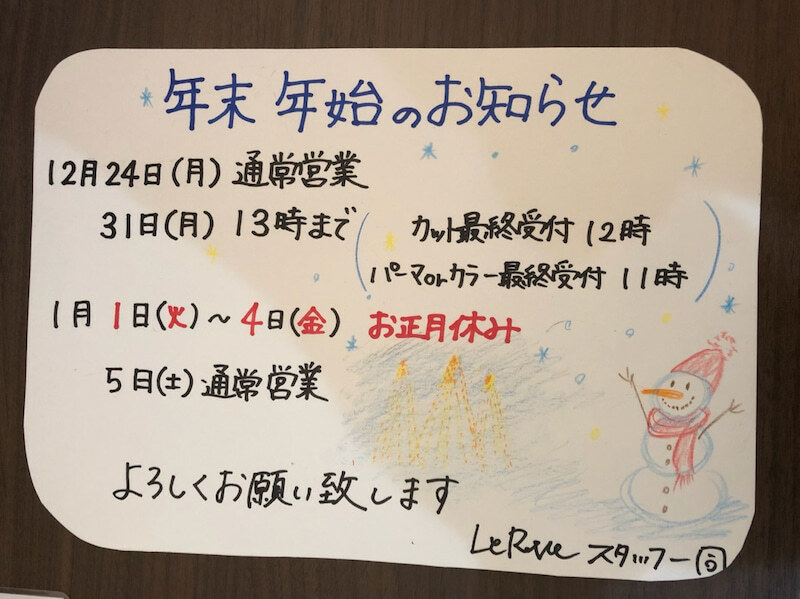 年末年始のお知らせ
12月24日(月) 通常営業
31日(月) 13時まで
(カット最終受付 12時
パーマorカラー最終受付 11時)
1月1日(火)~4日(金) お正月休み
5日(土) 通常営業
よろしくお願い致します
スタッフ一同